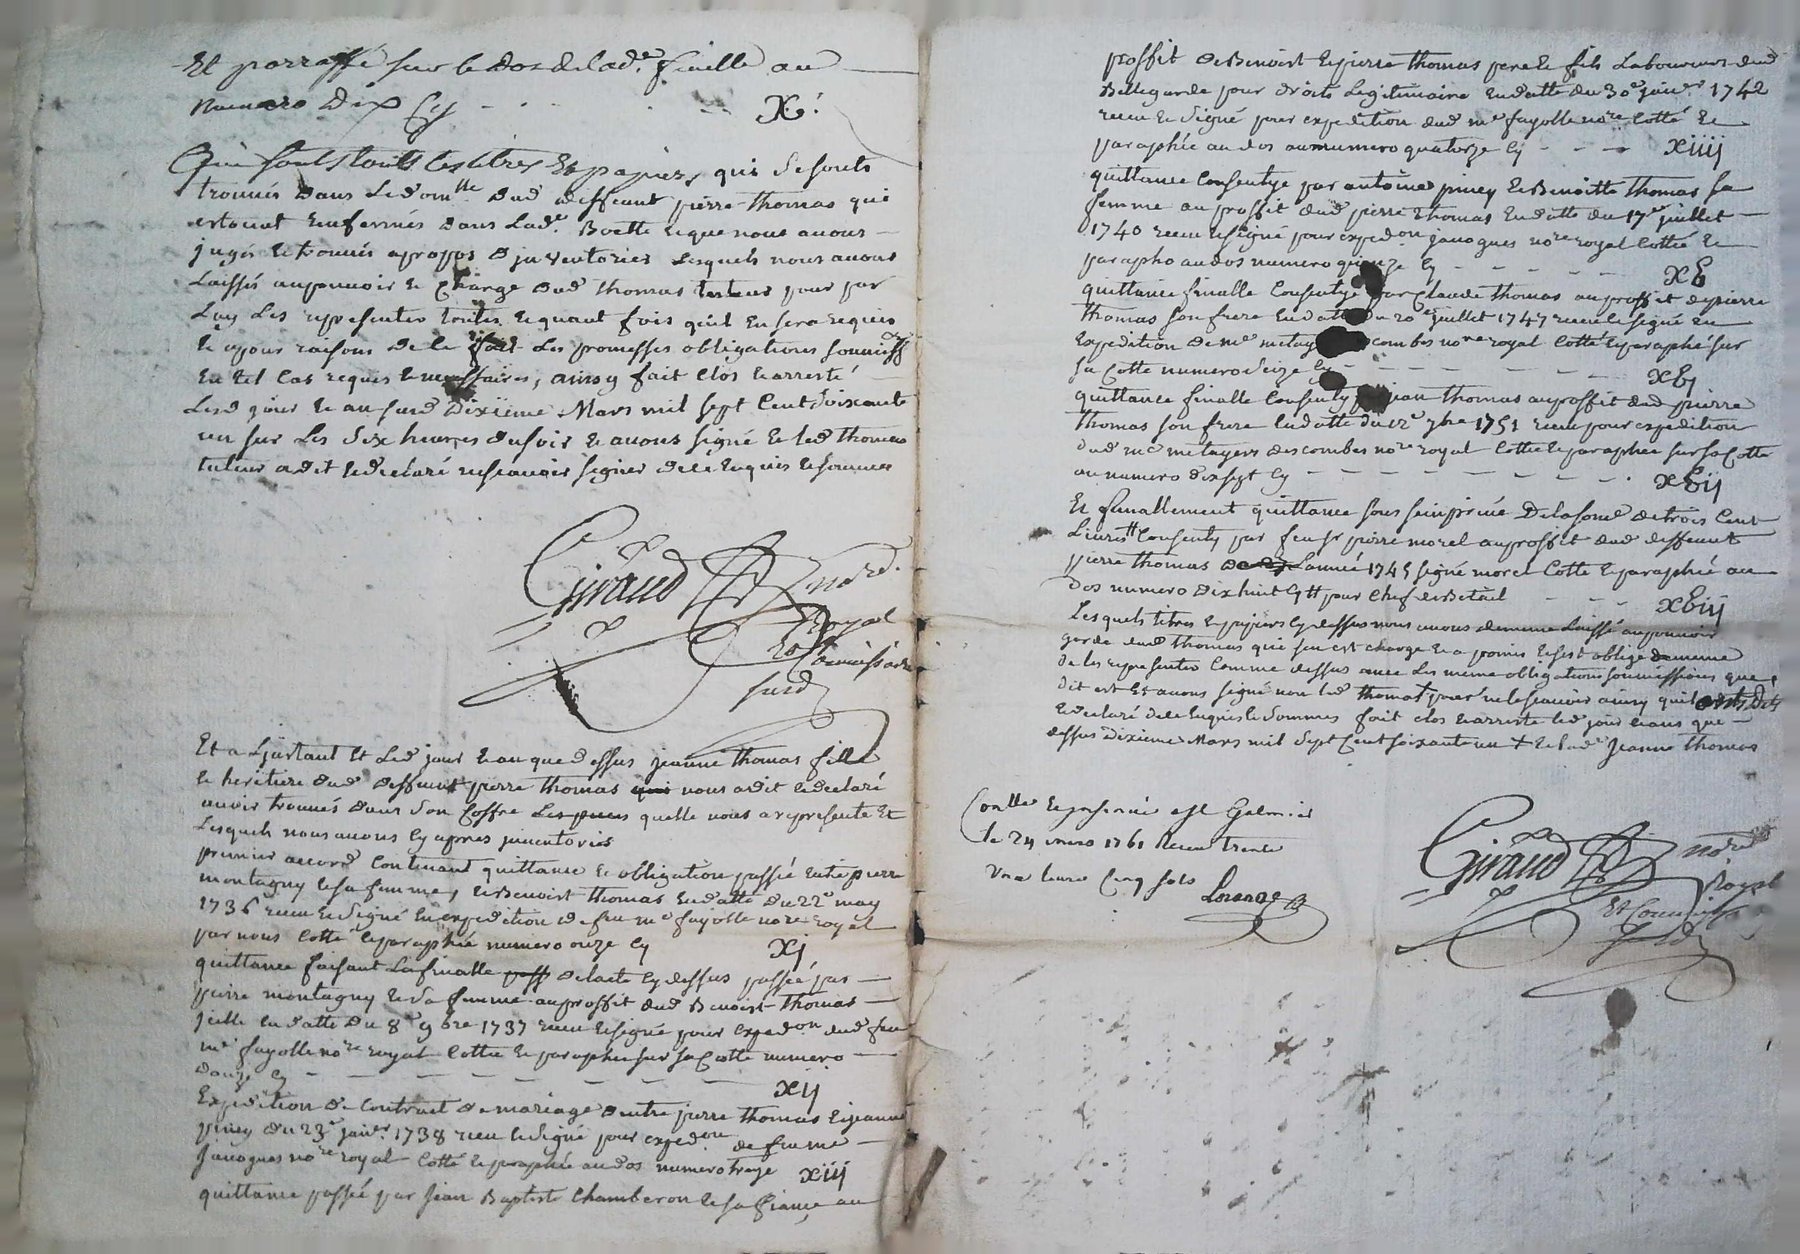 Et parraffé sur le dos de lad.e feuille au
numero dix Cy - - - X.
Qui sont touts les titres Et papiers, qui se sonts
trouvés dans le dom.lle dud deffeunt pierre thomas qui
estoient enfermés dans lad.e Boette et que nous avons
jugés et trouvés apropos d'inventories lesquels nous avons
Laissés au pouvoir et charge dud thomas tuteur pour par
Luy les representer toutes et quant fois quil en sera requis
a fait les promesses obligations soumiss
en tel cas requis et neссssaires, ainsy fait clos et arresté
Lesd jour et an susd dixiéme Mars mil sept Cent Soixante
un sur les six heures du soir et avons signé et led thomas
tuteur a dit et declaré ne scavoir signer de ce enquis et sommés
Giraud nore.
Royal
Commissaire
susd
Et a L'jnstant et led jour et an que dessus jeanne thomas fille
et heritiere dud deffeunt pierre thomas nous a dit et declaré
avoir trouvés dans son Coffre quelle nous a representé Et
Lesquels nous avons cy apres jnventories
premier accord Contenant quittance et obligation passée entre pierre
montagny et sa femme, et Benoist thomas en datte du 22e may
1736 receu et signé en expedition de feu me fayolle nore royal
par nous Cotté et paraphée numero onze Cy xj
quittance faisant La finalle de lacte Cy dessus passée par
pierre montagny et sa femme au proffit dud Benoist thomas
jcelle en datte du 8e 9bre 1737 receu et signé pour exped.on dud feu
me fayolle nore royal Cottée et paraphée sur sa Cotte numero
douze Cy - - - - - - - xij
Expedition de Contract de mariage dentre pierre thomas et jeanne
piney du 23e janv.er 1738 receu et signé pour exped.on de feu me
Janogues nore royal Cotté et paraphée au dos numero treze xiij
quittance passée par jean Baptiste Chamberon et sa fiance au
proffit de Benoist et pierre thomas pere et fils Laboureurs dud
Bellegarde pour droits Legitimaire en datte du 30e janv.er 1742
receu et signé pour expedition dud me fayolle nore Cotté et
paraphée au dos au numero quatorze Cy - - - xiiij
quittance Consentye par antoine piney et Benoitte thomas sa
femme au proffit dud pierre thomas en datte du 17e juillet
1740 receu et signé pour exped.on janogues nore royal Cottée et
parapho au dos numero quinze Cy - - - - - xv
quittance finalle Consentye par Claude thomas au proffit de pierre
thomas son frere en datte du 20e juillet 1747 receu et signé en
Expedition de me combes nore royal Cotté et paraphé sur
sa Cotte numero Seize Cy - - - - - - xvj
quittance finalle Consenty jean thomas au proffit dud pierre
thomas son frere en datte du 12e 9bre 1751 receu pour expedition
dud me metayers descombes nore royal Cottée et paraphée sur sa Cotte
au numero dix sept Cy - - - - - - - xvij
Et finallement quittance sous sein privé De la some de trois Cent
Livres Consenty par feu sr pierre morel au proffit dud deffeunt
pierre thomas de L'année 1745 signé morel Cotté et paraphée au
dos numero dix huit Cy pour Chef de Betail - - - xviij
Lesquels titres et papiers Cy dessus nous avons de meme Laissé au pouvoir
garde dud thomas qui sen est chargé et a promis et sest obligé de meme
de les representer Comme dessus avec les meme obligations soumissions que
dit est Et avons signé non led thomas + pour ne le scavoir ainsy quil a dit
et declaré de ce enquis et sommés fait clos et arresté led jour et an que
dessus dixieme Mars mil Sept Cent soixante un + et lad.e Jeanne thomas
Conlle a st Galmier
le 24 mars 1761 Receu trente
une livre Cinq sols
Giraud nore
Royal
Et Commiss
susd